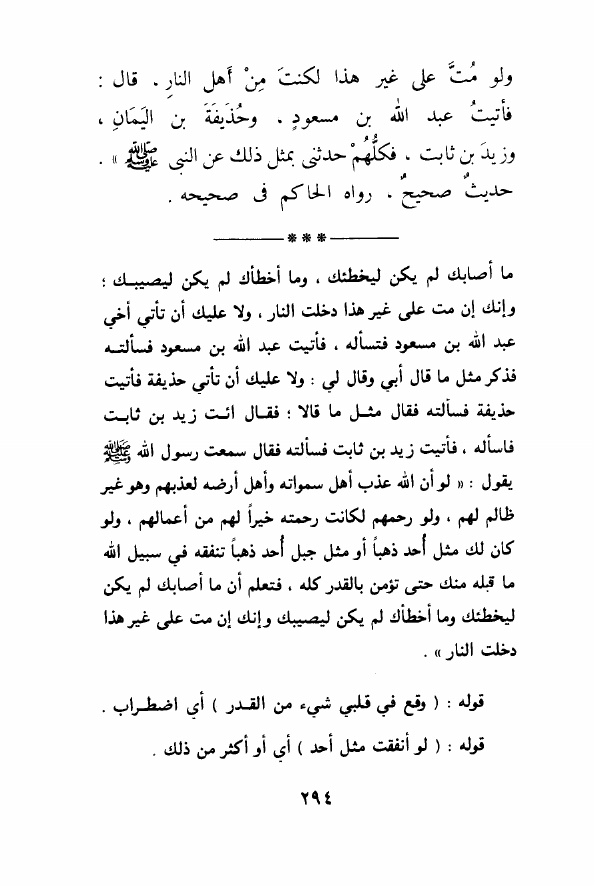 ولو مُتَّ على غير هذا لكنتَ مِنْ أهل النارِ . قال :
فأتيتُ عبد الله بن مسعودٍ . وحُذَيفَةَ بن اليَمَانِ ،
وزيدَ بن ثابت ، فكلُّهُمْ حدثنى بمثل ذلك عن النبى ﷺ » .
حديثٌ صحيحٌ . رواه الحاكم فى صحيحه .
ما أصابك لم يكن ليخطئك ، وما أخطأك لم يكن ليصيبك ؛
وإنك إن مت على غير هذا دخلت النار ، ولا عليك أن تأتي أخي
عبد الله بن مسعود فتسأله ، فأتيت عبد الله بن مسعود فسألته
فذكر مثل ما قال أبي وقال لي : ولا عليك أن تأتي حذيفة فأتيت
حذيفة فسألته فقال مثل ما قالا ؛ فقال ائت زيد بن ثابت
فاسأله ، فأتيت زيد بن ثابت فسألته فقال سمعت رسول الله ﷺ
يقول : « لو أن الله عذب أهل سمواته وأهل أرضه لعذبهم وهو غير
ظالم لهم ، ولو رحمهم لكانت رحمته خيراً لهم من أعمالهم ، ولو
كان لك مثل أُحد ذهباً أو مثل جبل أُحد ذهباً تنفقه في سبيل الله
ما قبله منك حتى تؤمن بالقدر كله ، فتعلم أن ما أصابك لم يكن
ليخطئك وما أخطأك لم يكن ليصيبك وإنك إن مت على غير هذا
دخلت النار » .
قوله : ( وقع في قلبي شيء من القدر ) أي اضطراب .
قوله : ( لو أنفقت مثل أحد ) أي أو أكثر من ذلك .
٢٩٤